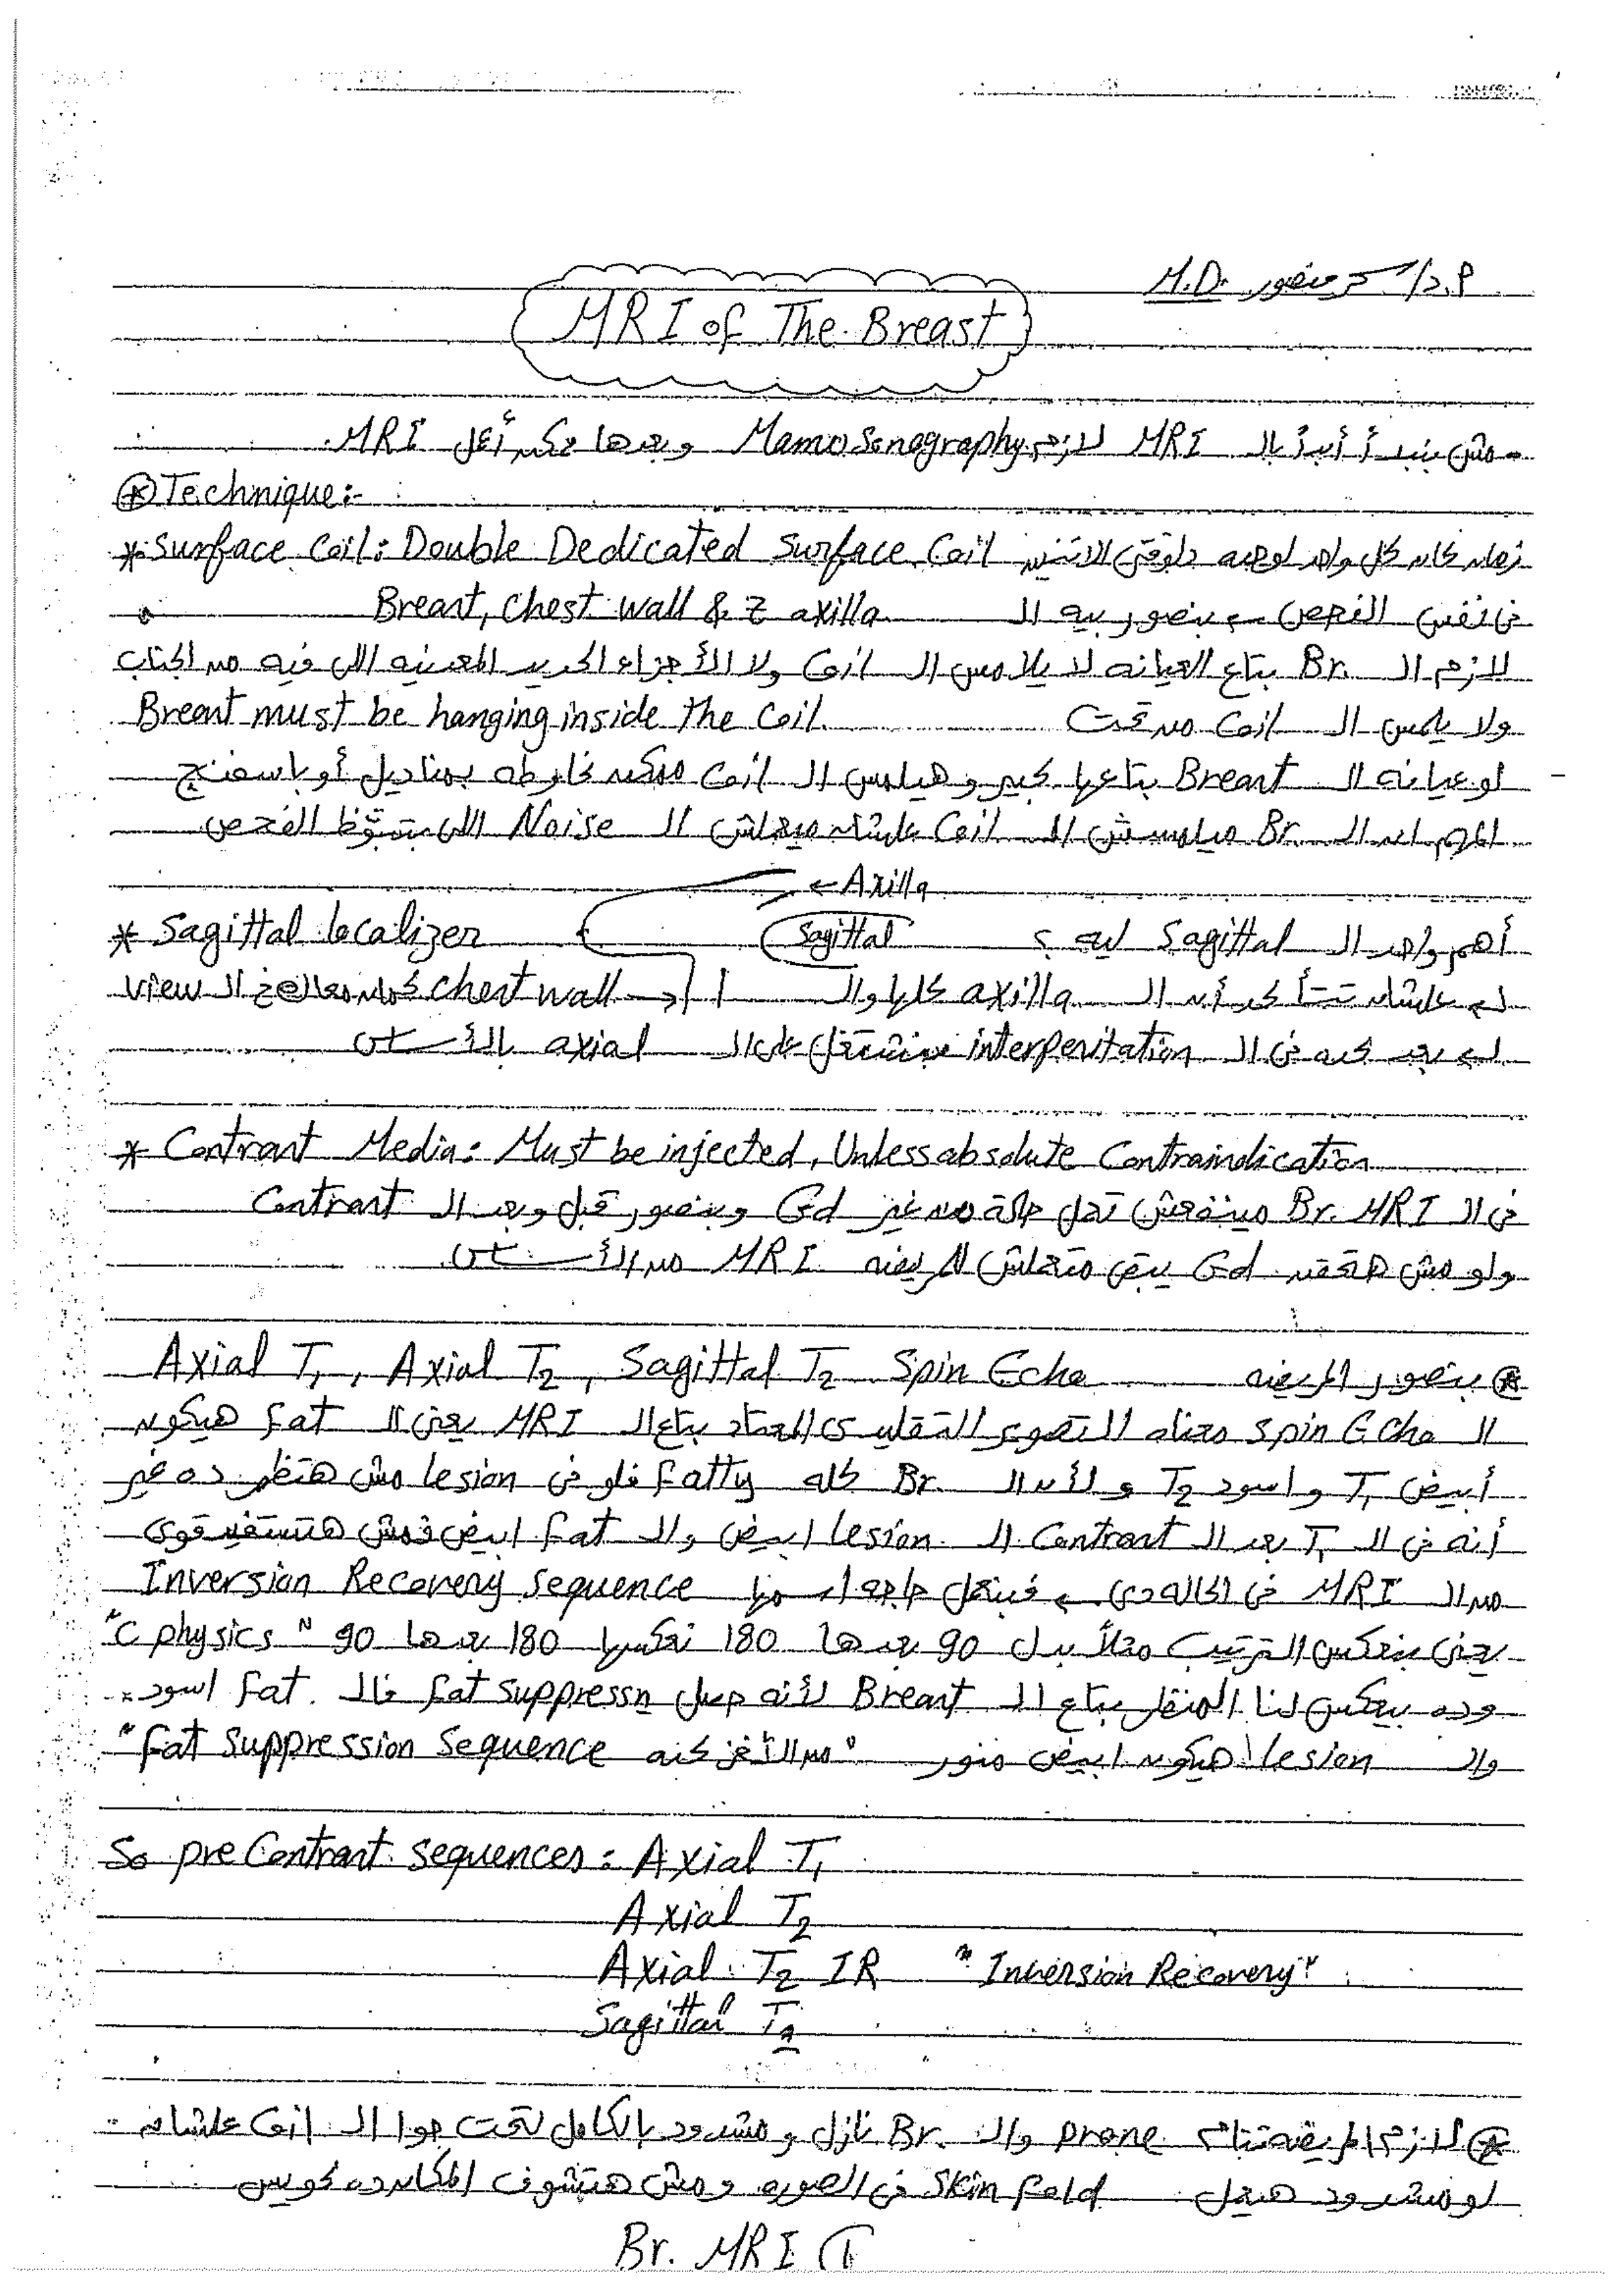 أ.د/ سحر منصور M.D.
MRI of The Breast
- مش نبدأ أبداً بالـ MRI لازم Mamo Sonography وبعدها ممكن أعمل MRI.
* Technique:-
* Surface Coil: Double Dedicated Surface Coil زمان كان كل واحد لوحده دلوقتى الاتنين
فى نفس الفحص ← بنصور بيه الـ Breast, chest wall & z axilla
لازم الـ Br. بتاع العيانه لا يلامس الـ Coil ولا الأجزاء الحديد المعدنيه اللى فيه من الجناب
ولا يلمس الـ Coil من تحت Breast must be hanging inside the Coil
لو عيانه الـ Breast بتاعها كبير وهيلمس الـ Coil ممكن نحاوطه بمناديل أو باسفنج
المهم ان الـ Br. ميلمسش الـ Coil علشان ميعملش الـ Noise اللى بتبوظ الفحص
← Axilla
* Sagittal localizer Sagittal أهم واحد الـ Sagittal ليه ؟
لـ علشان تتأكدى أن الـ axilla كلها والـ chest wall كمان معاك فى الـ view
لـ بعد كده فى الـ interpertation بنشتغل على الـ axial بالأساس
* Contrast Media: Must be injected, Unless absolute Contraindication
فى الـ Br. MRI مينفعش تعمل حالة من غير Gd وبنصور قبل وبعد الـ Contrast
ولو مش هتحقن Gd يبقى متعملش للمريضه MRI من الأساس.
* بنصور المريضه Axial T1, Axial T2, Sagittal T2 Spin Echo
الـ Spin Echo معناه التصوير التقليدى المعتاد بتاع الـ MRI يعنى الـ fat هيكون
أبيض T1 واسود T2 ولأن الـ Br. كله Fatty فلو فى lesion مش هتظهر ده غير
أنه فى الـ T1 بعد الـ Contrast الـ lesion ابيض والـ fat ابيض فمش هتستفيد قوى
من الـ MRI فى الحاله دى ← فبنعمل حاجه اسمها Inversion Recovery Sequence
يعنى بنعكس الترتيب مثلاً بدل 90 بعدها 180 نعكسها 180 بعدها 90 "C physics"
وده بيعكس لنا المنظر بتاع الـ Breast لأنه حصل fat suppressn فالـ fat اسود
والـ lesion هيكون ابيض منور "من الآخر كده fat Suppression Sequence"
So pre Contrast sequences: Axial T1
Axial T2
Axial T2 IR "Inversion Recovery"
Sagittal T2
* لازم المريضه تنام prone والـ Br. نازل ومشدود بالكامل لتحت جوا الـ Coil علشان
لو مشدود هيعمل Skin fold فى الصوره ومش هتشوف المكان ده كويس
Br. MRI 1